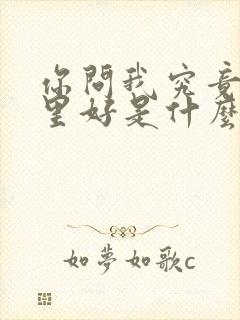 你問我究竟
里好是什麼
如夢如歌c